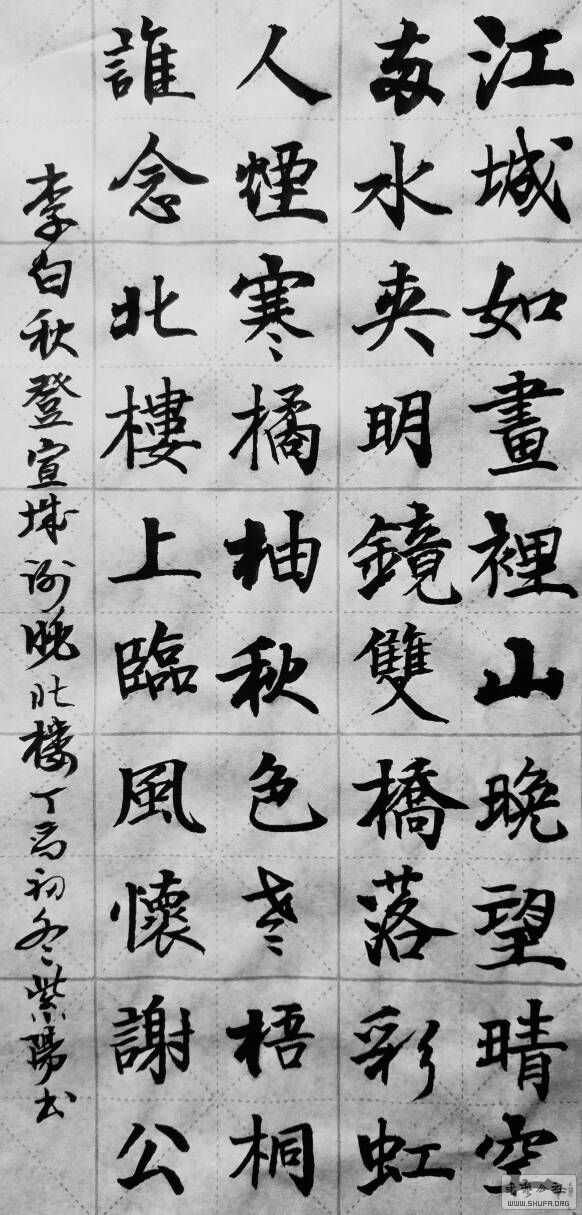 江城如畫裡山晚望晴空
兩水夾明鏡雙橋落彩虹
人煙寒橘柚秋色老梧桐
誰念北樓上臨風懷謝公
李白秋登宣城谢眺北楼丁酉初冬紫陽书
WWW.SHUFA.ORG